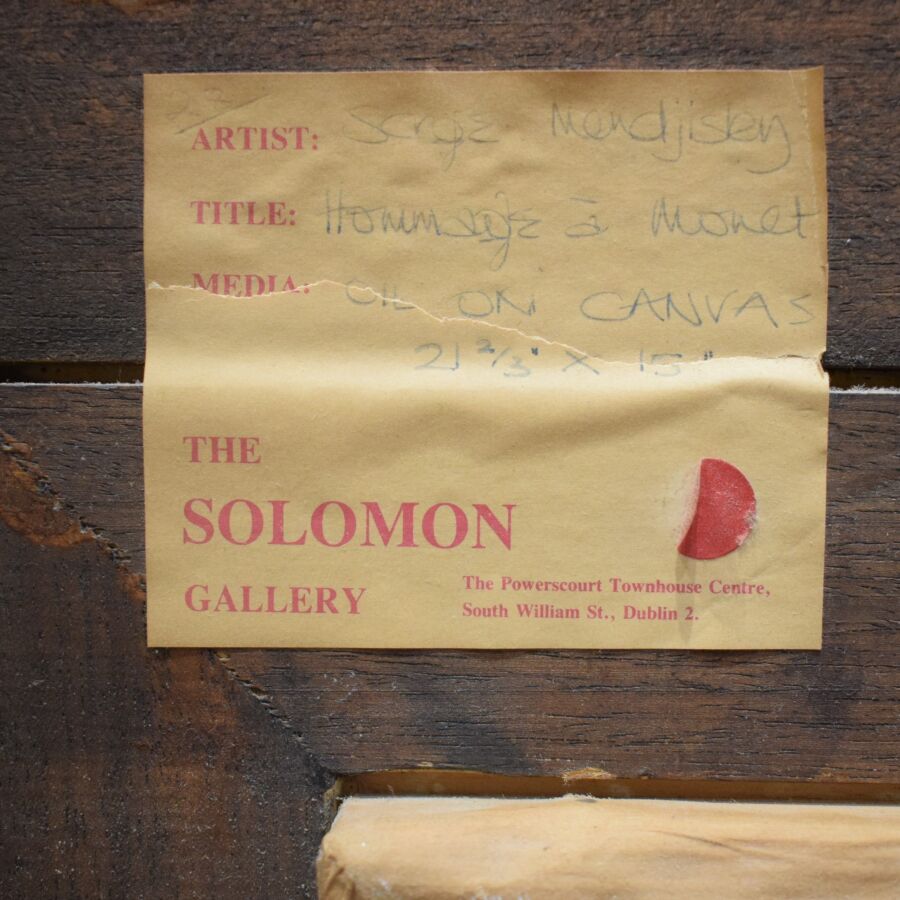 ARTIST: Serge Mendjisky
TITLE: Hommage à Monet
MEDIA: OIL ON CANVAS
21 2/3" X 15"
THE
SOLOMON
GALLERY
The Powerscourt Townhouse Centre,
South William St., Dublin 2.